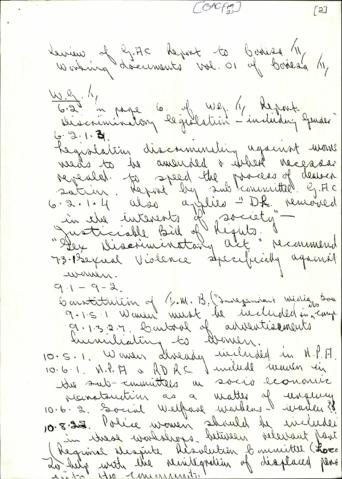 [2]
Review of G.A.C Report to Codesa II,
Working documents vol. 01 of Codesa II,
W.G. I,
6.2 in page 6 of WG I, Report.
Discriminatory legislation – including Gender
6.2.1.3
Legislation discriminating against wome
needs to be amended & when necessar
repealed to speed the process of
Report by sub-committee G.A.C
6.2.1.4 also applies – "DR removed
in the interests of society" –
Justiciable Bill of Rights.
"Sex Discriminatory act" recommend
7.3.1 Sexual Violence specificity against
women.
9.1 – 9.2.
Constitution of I.M.B. (Independent media
9.1.5.1 Women must be included in
9.1.3.2.7. Control of advertisements
humiliating to women.
10.5.1. Women already included in N.P.A.
10.6.1. N.P.A & R.D.R.C include women in
the sub-committees on socio economic
reconstruction as a matter of urgency
10.6.2. Social Welfare workers
10.8. Police women should be include
in these workshops between relevant
(Regional Dispute Resolution Committee) (Loc
to help with the reintegration of displaced